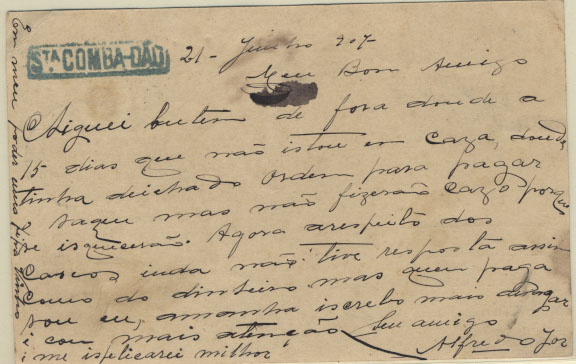 STA COMBA-DÃO
21 - Junho 907
Meu Bom Amigo
Xiguei hutem de fora donde a
15 dias que não istou em caza, donde
tinha deichado ordem para pagar
saque mas não fizerão cazo porque
se isquicerão. Agora arespeito dos
Cascos inda não tive resposta assim
Como do dinheiro mas quem paga
sou eu, amanha iscrebo mais
com mais atenção Seu amigo
me isplicarei milhor Alfredo
Em meu poder uma